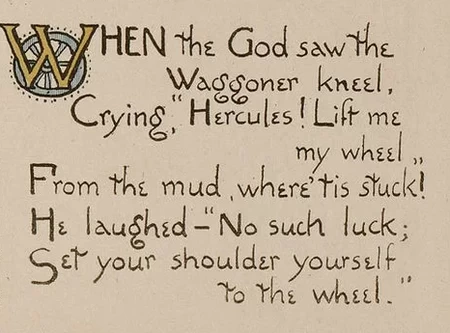 WHEN the God saw the
Waggoner kneel,
Crying, "Hercules! Lift me
my wheel,,
From the mud, where 'tis stuck!
He laughed–"No such luck;
Set your shoulder yourself
to the wheel."